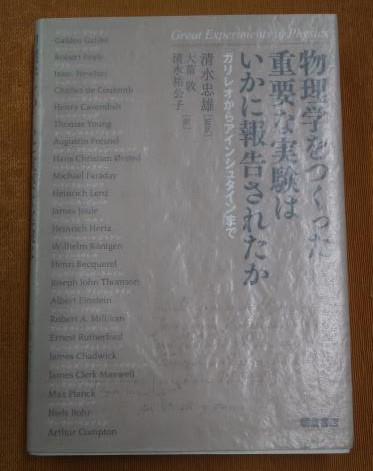 Great Experiments in Physics
物理学をつくった
重要な実験は
いかに報告されたか
ガリレオからアインシュタインまで
清水忠雄[監訳]
大苗 敦
清水祐公子[訳]
Galileo Galilei
Robert Boyle
Isaac Newton
Charles de Coulomb
Henry Cavendish
Thomas Young
Augustin Fresnel
Hans Christian Ørsted
Michael Faraday
Heinrich Lenz
James Joule
Heinrich Hertz
Wilhelm Röntgen
Henri Becquerel
Joseph John Thomson
Albert Einstein
Robert A. Millikan
Ernest Rutherford
James Chadwick
James Clerk Maxwell
Max Planck
Niels Bohr
Arthur Compton
朝倉書店